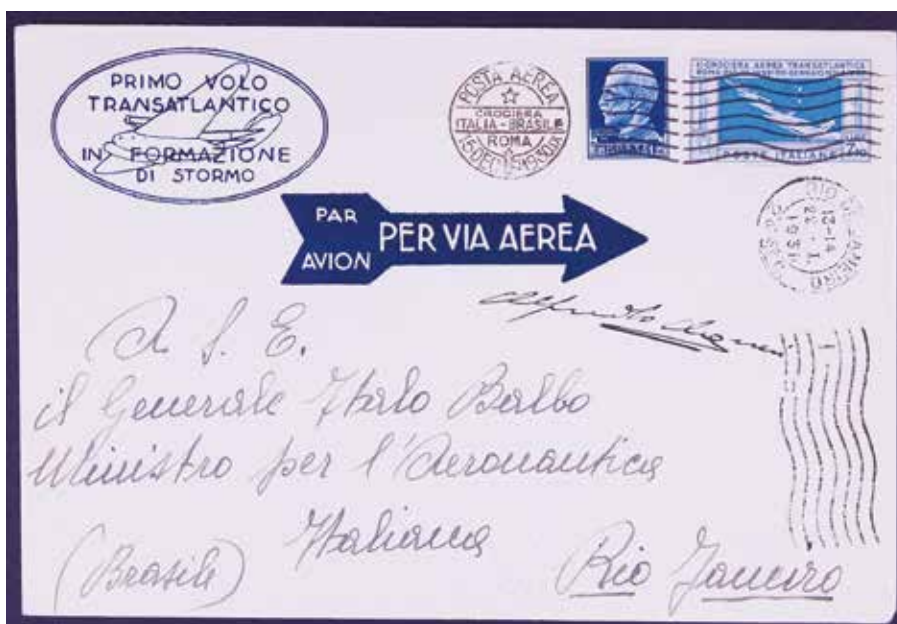 PRIMO VOLO
TRANSATLANTICO
IN FORMAZIONE
DI STORMO
POSTA AEREA
CROCIERA
ITALIA-BRASILE
ROMA
15 DEC 1930 IX
CROCIERA AEREA TRANSATLANTICA
POSTE ITALIANE
7,70
RIO DE JANEIRO
13-14
22 I
1931
PAR
AVION
PER VIA AEREA
A S. E.
il Generale Italo Balbo
Ministro per l'Aeronautica
Italiana
(Brasile)
Rio Janeiro